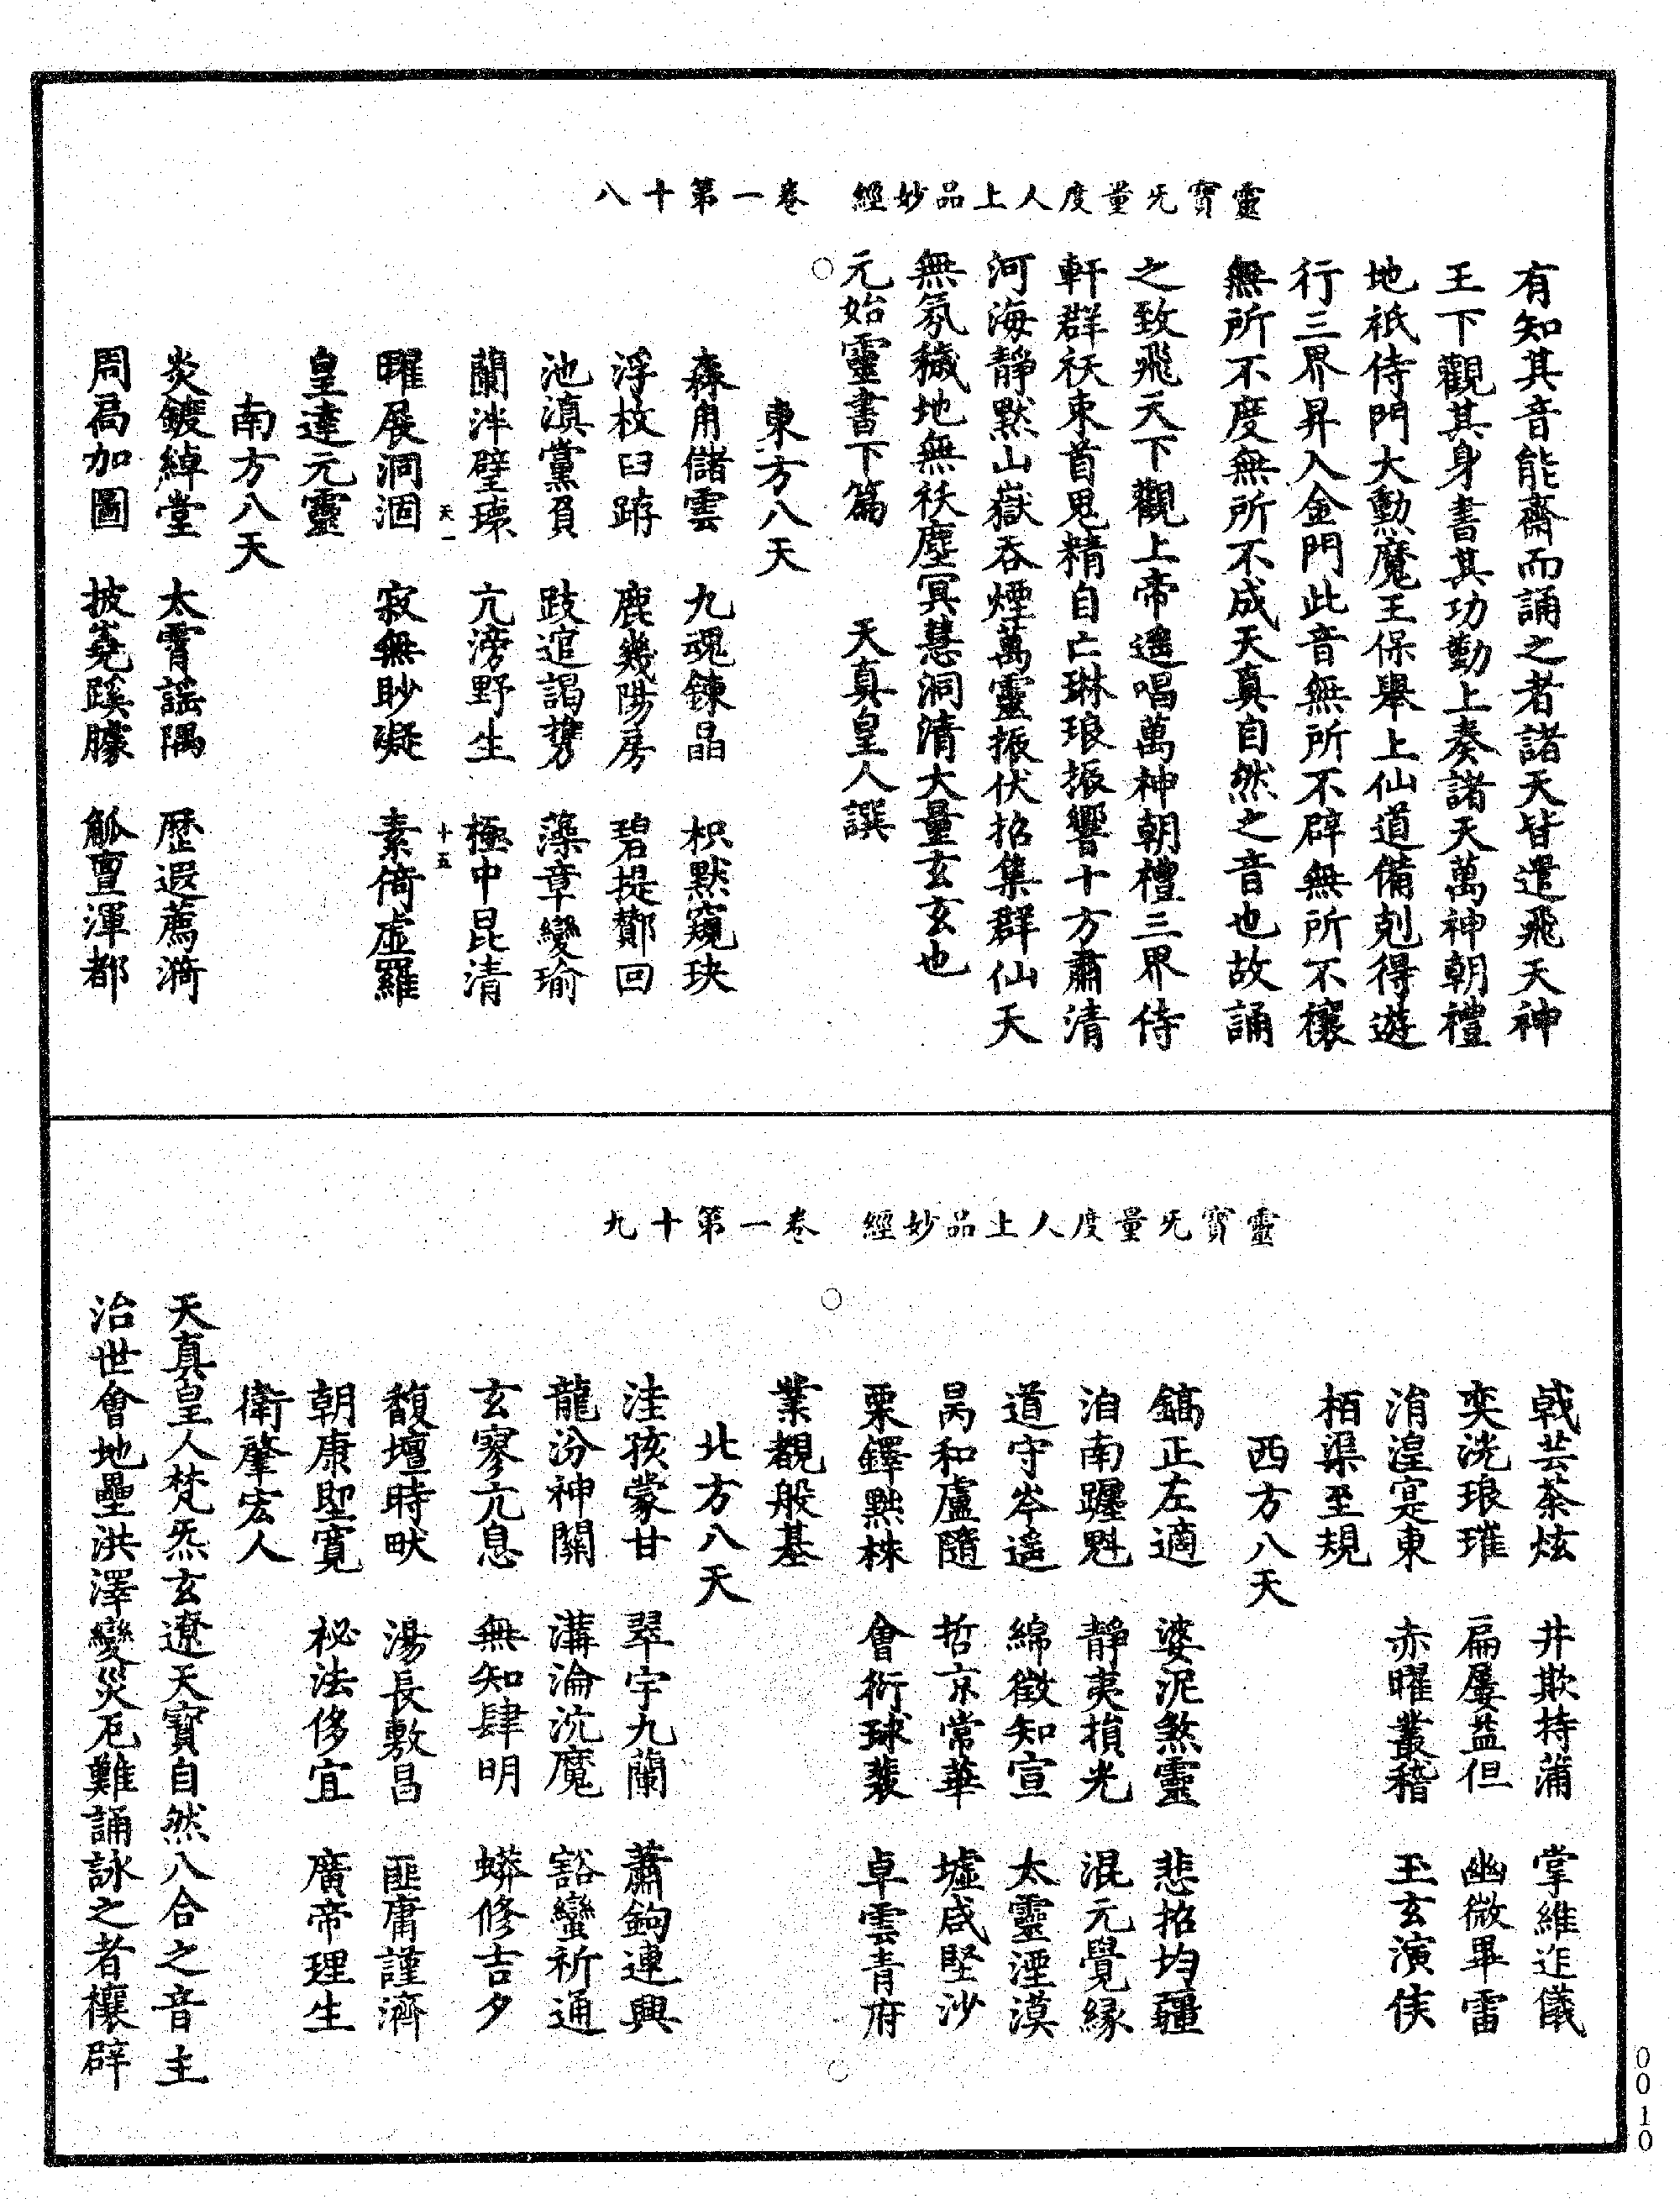 靈寶无量度人上品妙經　卷一第十八
有知其音能齋而誦之者諸天皆遣飛天神
王下觀其身書其功勤上奏諸天萬神朝禮
地祇侍門大勳魔王保舉上仙道備剋得遊
行三界昇入金門此音無所不辟無所不禳
無所不度無所不成天真自然之音也故誦
之致飛天下觀上帝遥唱萬神朝禮三界侍
軒群祅束首鬼精自亡琳琅振響十方肅清
河海靜默山嶽吞煙萬靈振伏招集群仙天
無氛穢地無祅塵冥慧洞清大量玄玄也
○
元始靈書下篇　天真皇人譔
東方八天
森角儲雲　九魂鍊晶　枳默窺玦
浮枚臼蹐　鹿幾陽房　碧提酇回
池滇黨負　跂逭謁雋　藻章變瑜
蘭泮璧瑔　亢滂野生　極中昆清
天一　十五
曜展洞涸　寂無眇礙　素倚虛羅
皇達元靈
南方八天
炎鍍綽堂　太霄謠隅　歷遐薦漪
周局加圖　披蕘蹊臄　觚亶渾都
靈寶无量度人上品妙經　卷一第十九
戟芸荼炫　井欺持蒲　掌維迮儀
奕洸琅璀　扁屢益但　幽微畢雷
淯湟寔東　赤曜叢稽　玉玄演侯
栢渠至規
西方八天
鎬正左適　婆泥煞靈　悲招均疆
洎南躔魁　靜夷損光　混元覺緣
道守岑遥　綿徵知宣　太靈湮漠
昺和盧隨　哲京常華　墟咸堅沙
栗鐸黙株　會衍球裴　卓雲青府
○
業覩般基
北方八天
洼孩蒙甘　翠宇九蘭　蕭鉤連興
龍汾神闕　溝淪沇魔　豁蠻祈通
玄寥亢息　無知肆明　蟒修吉夕
馥壇時畎　湯長敷昌　匪庸謹濟
朝康堲寬　秘法侈宜　廣帝理生
衛肇宏人
天真皇人梵炁玄遼天寶自然八合之音主
治世會地壘洪澤變災厄難誦詠之者禳辟
○
0010